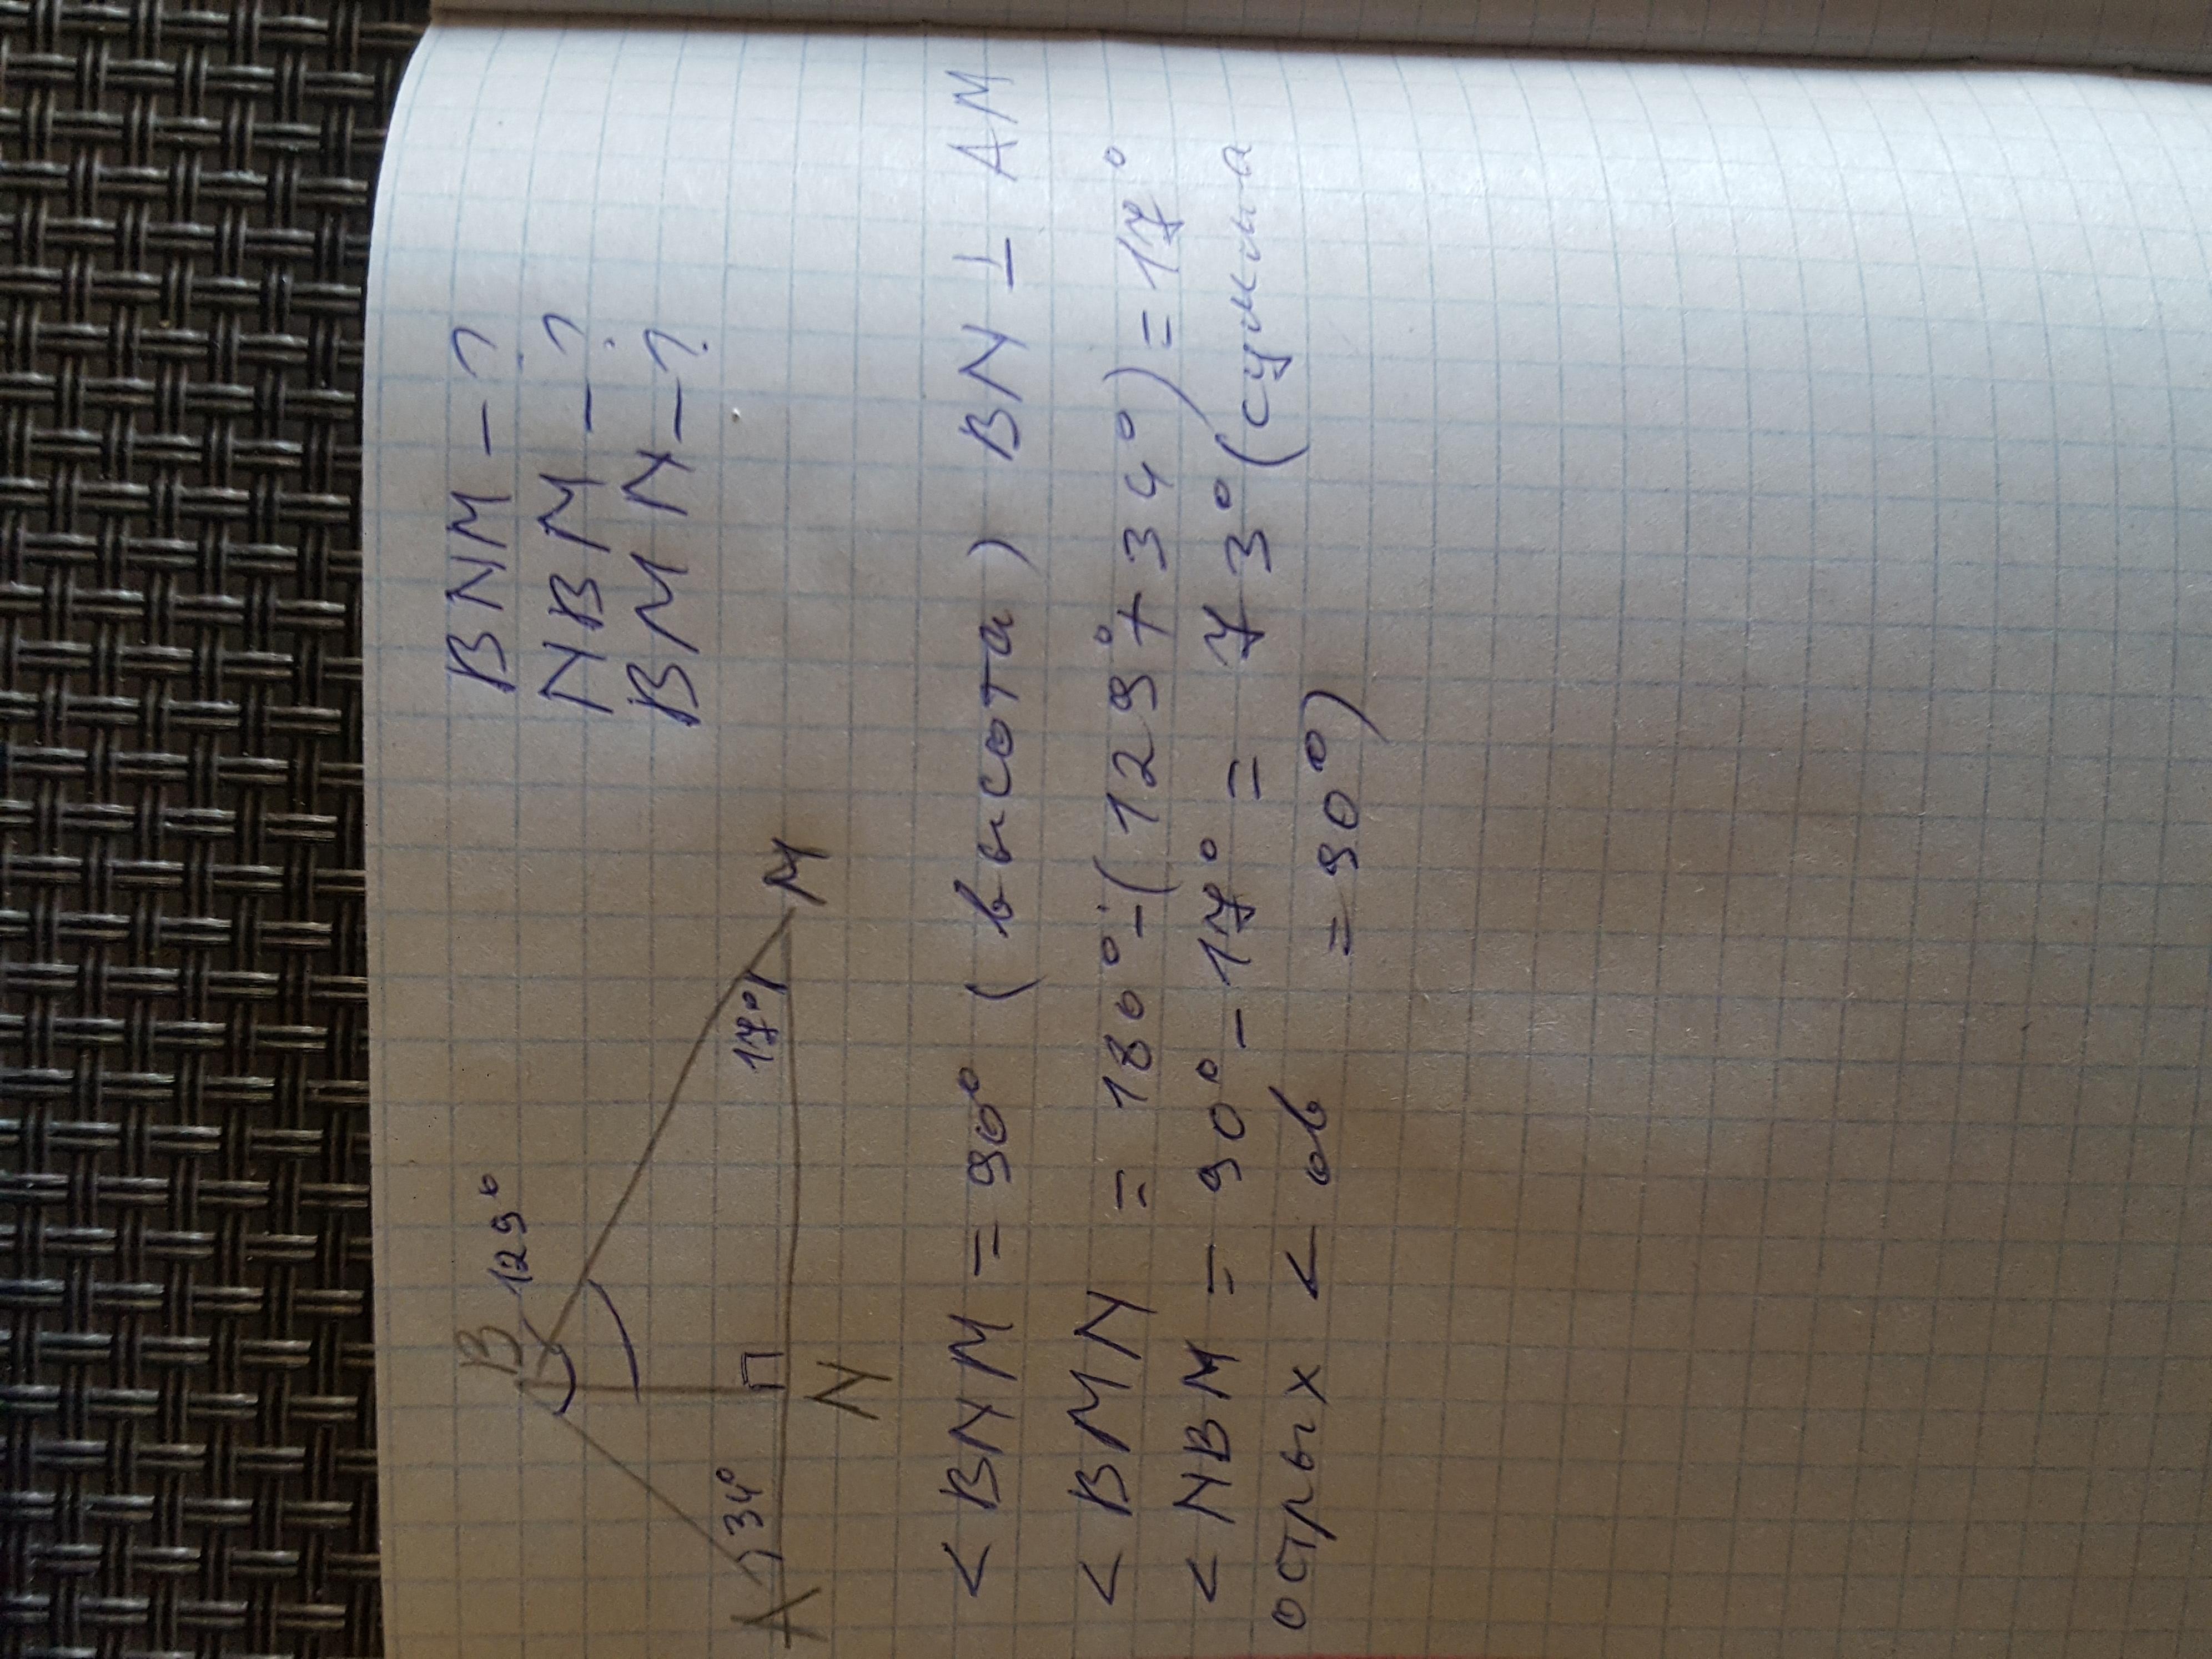 B 129°
34°
17°
A
N
M
BNM - ?
NBM - ?
BMN - ?
< BNM = 90° ( высота ) BN ⊥ AM
< BMN = 180° - ( 129° + 34° ) = 17°
< NBM = 90° - 17° = 73° ( сумма
острых < ов = 90° )